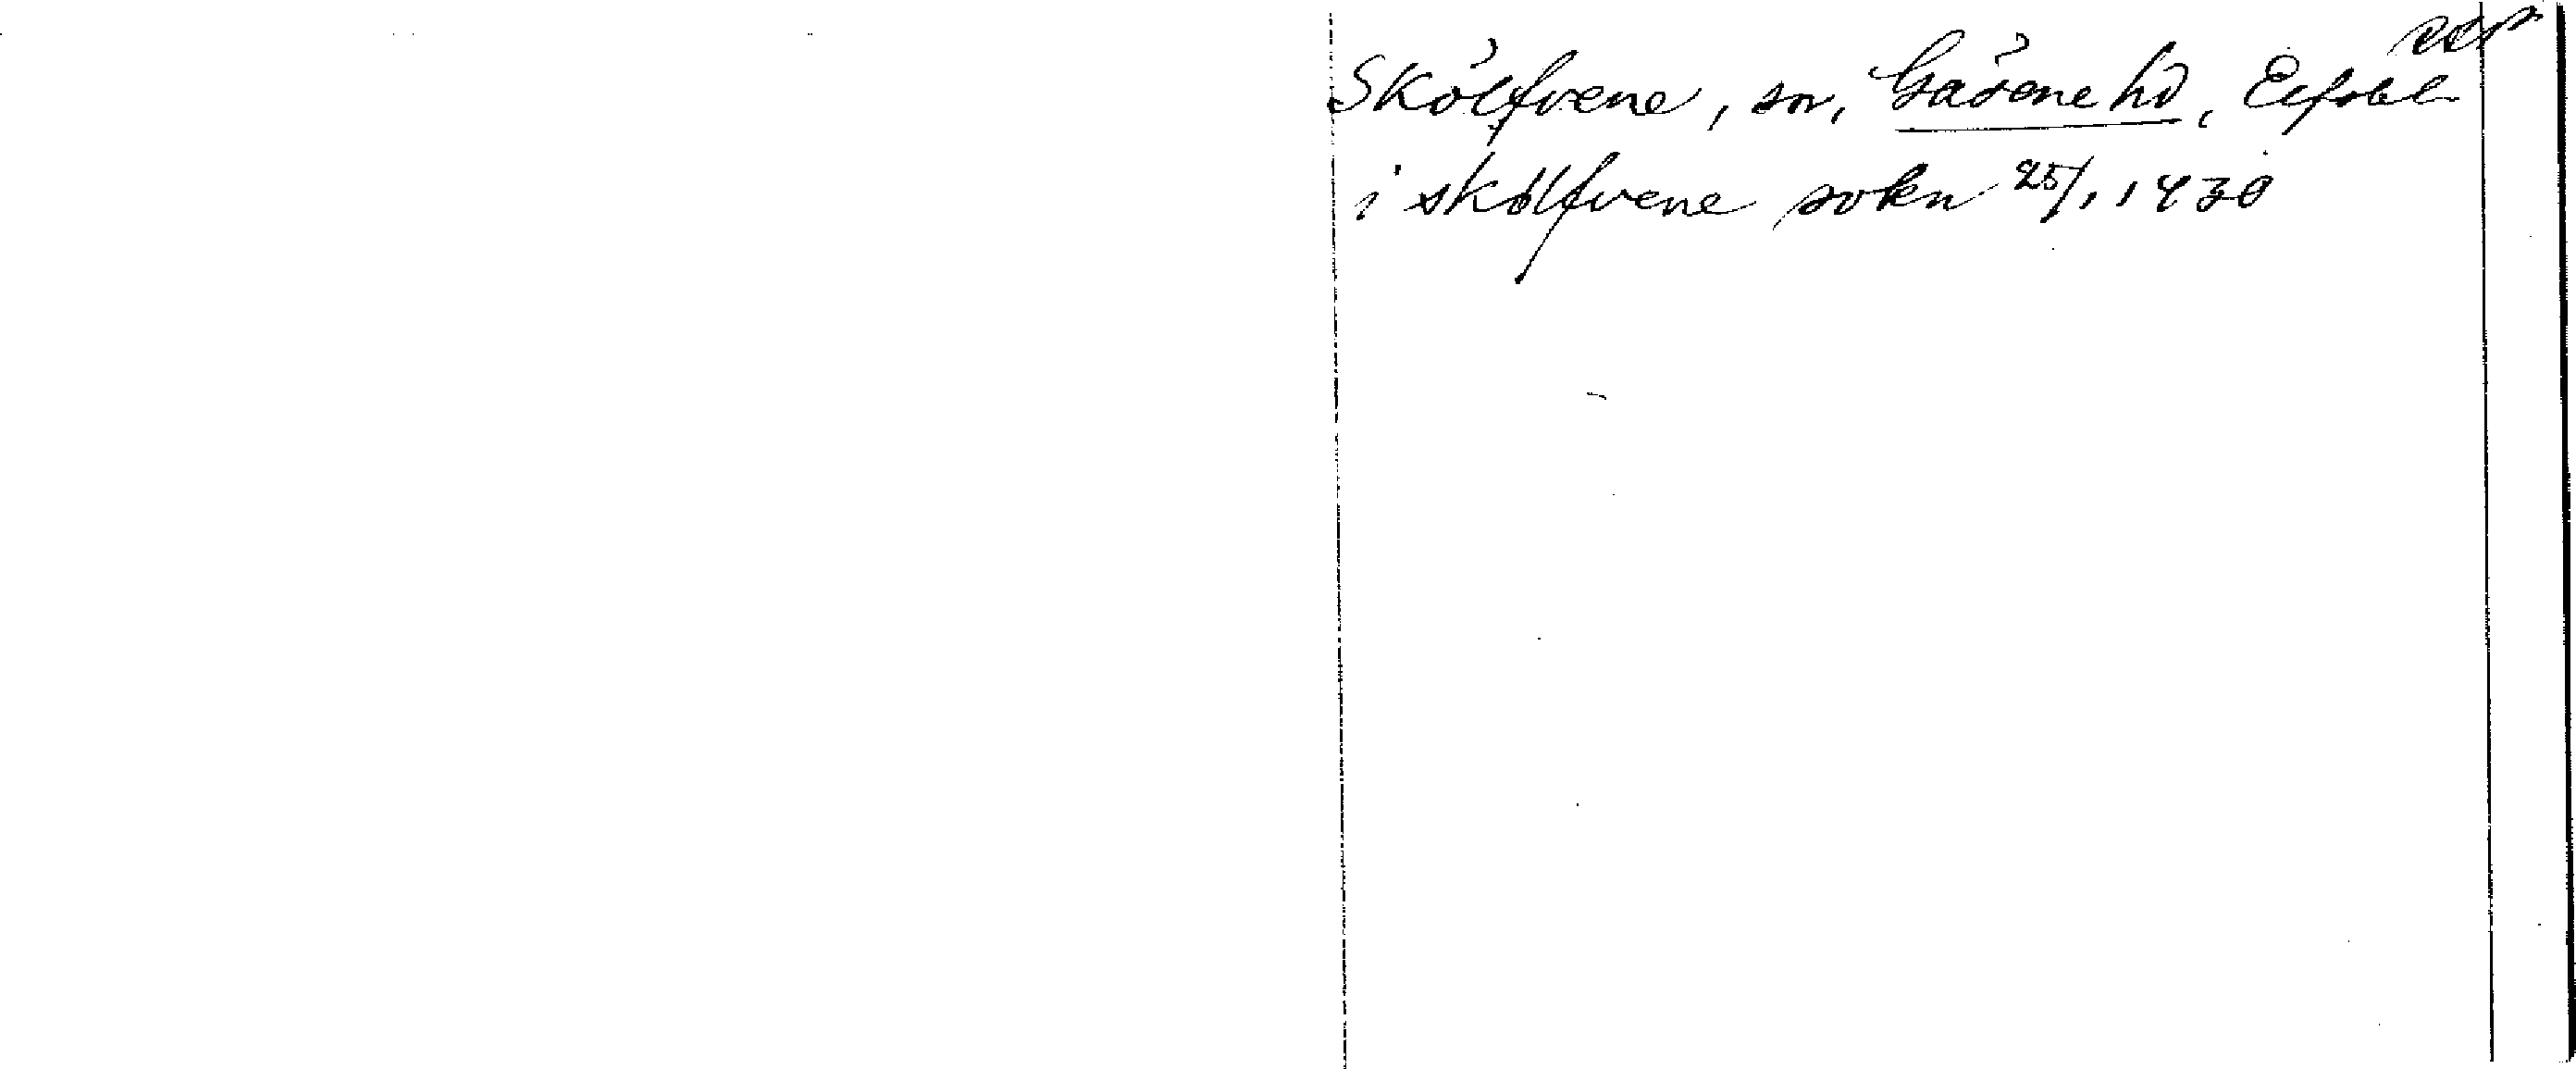 Skölfvene, sn, Gäsene hd, Elfsbl
i skölfvene sokn 25/1 1430